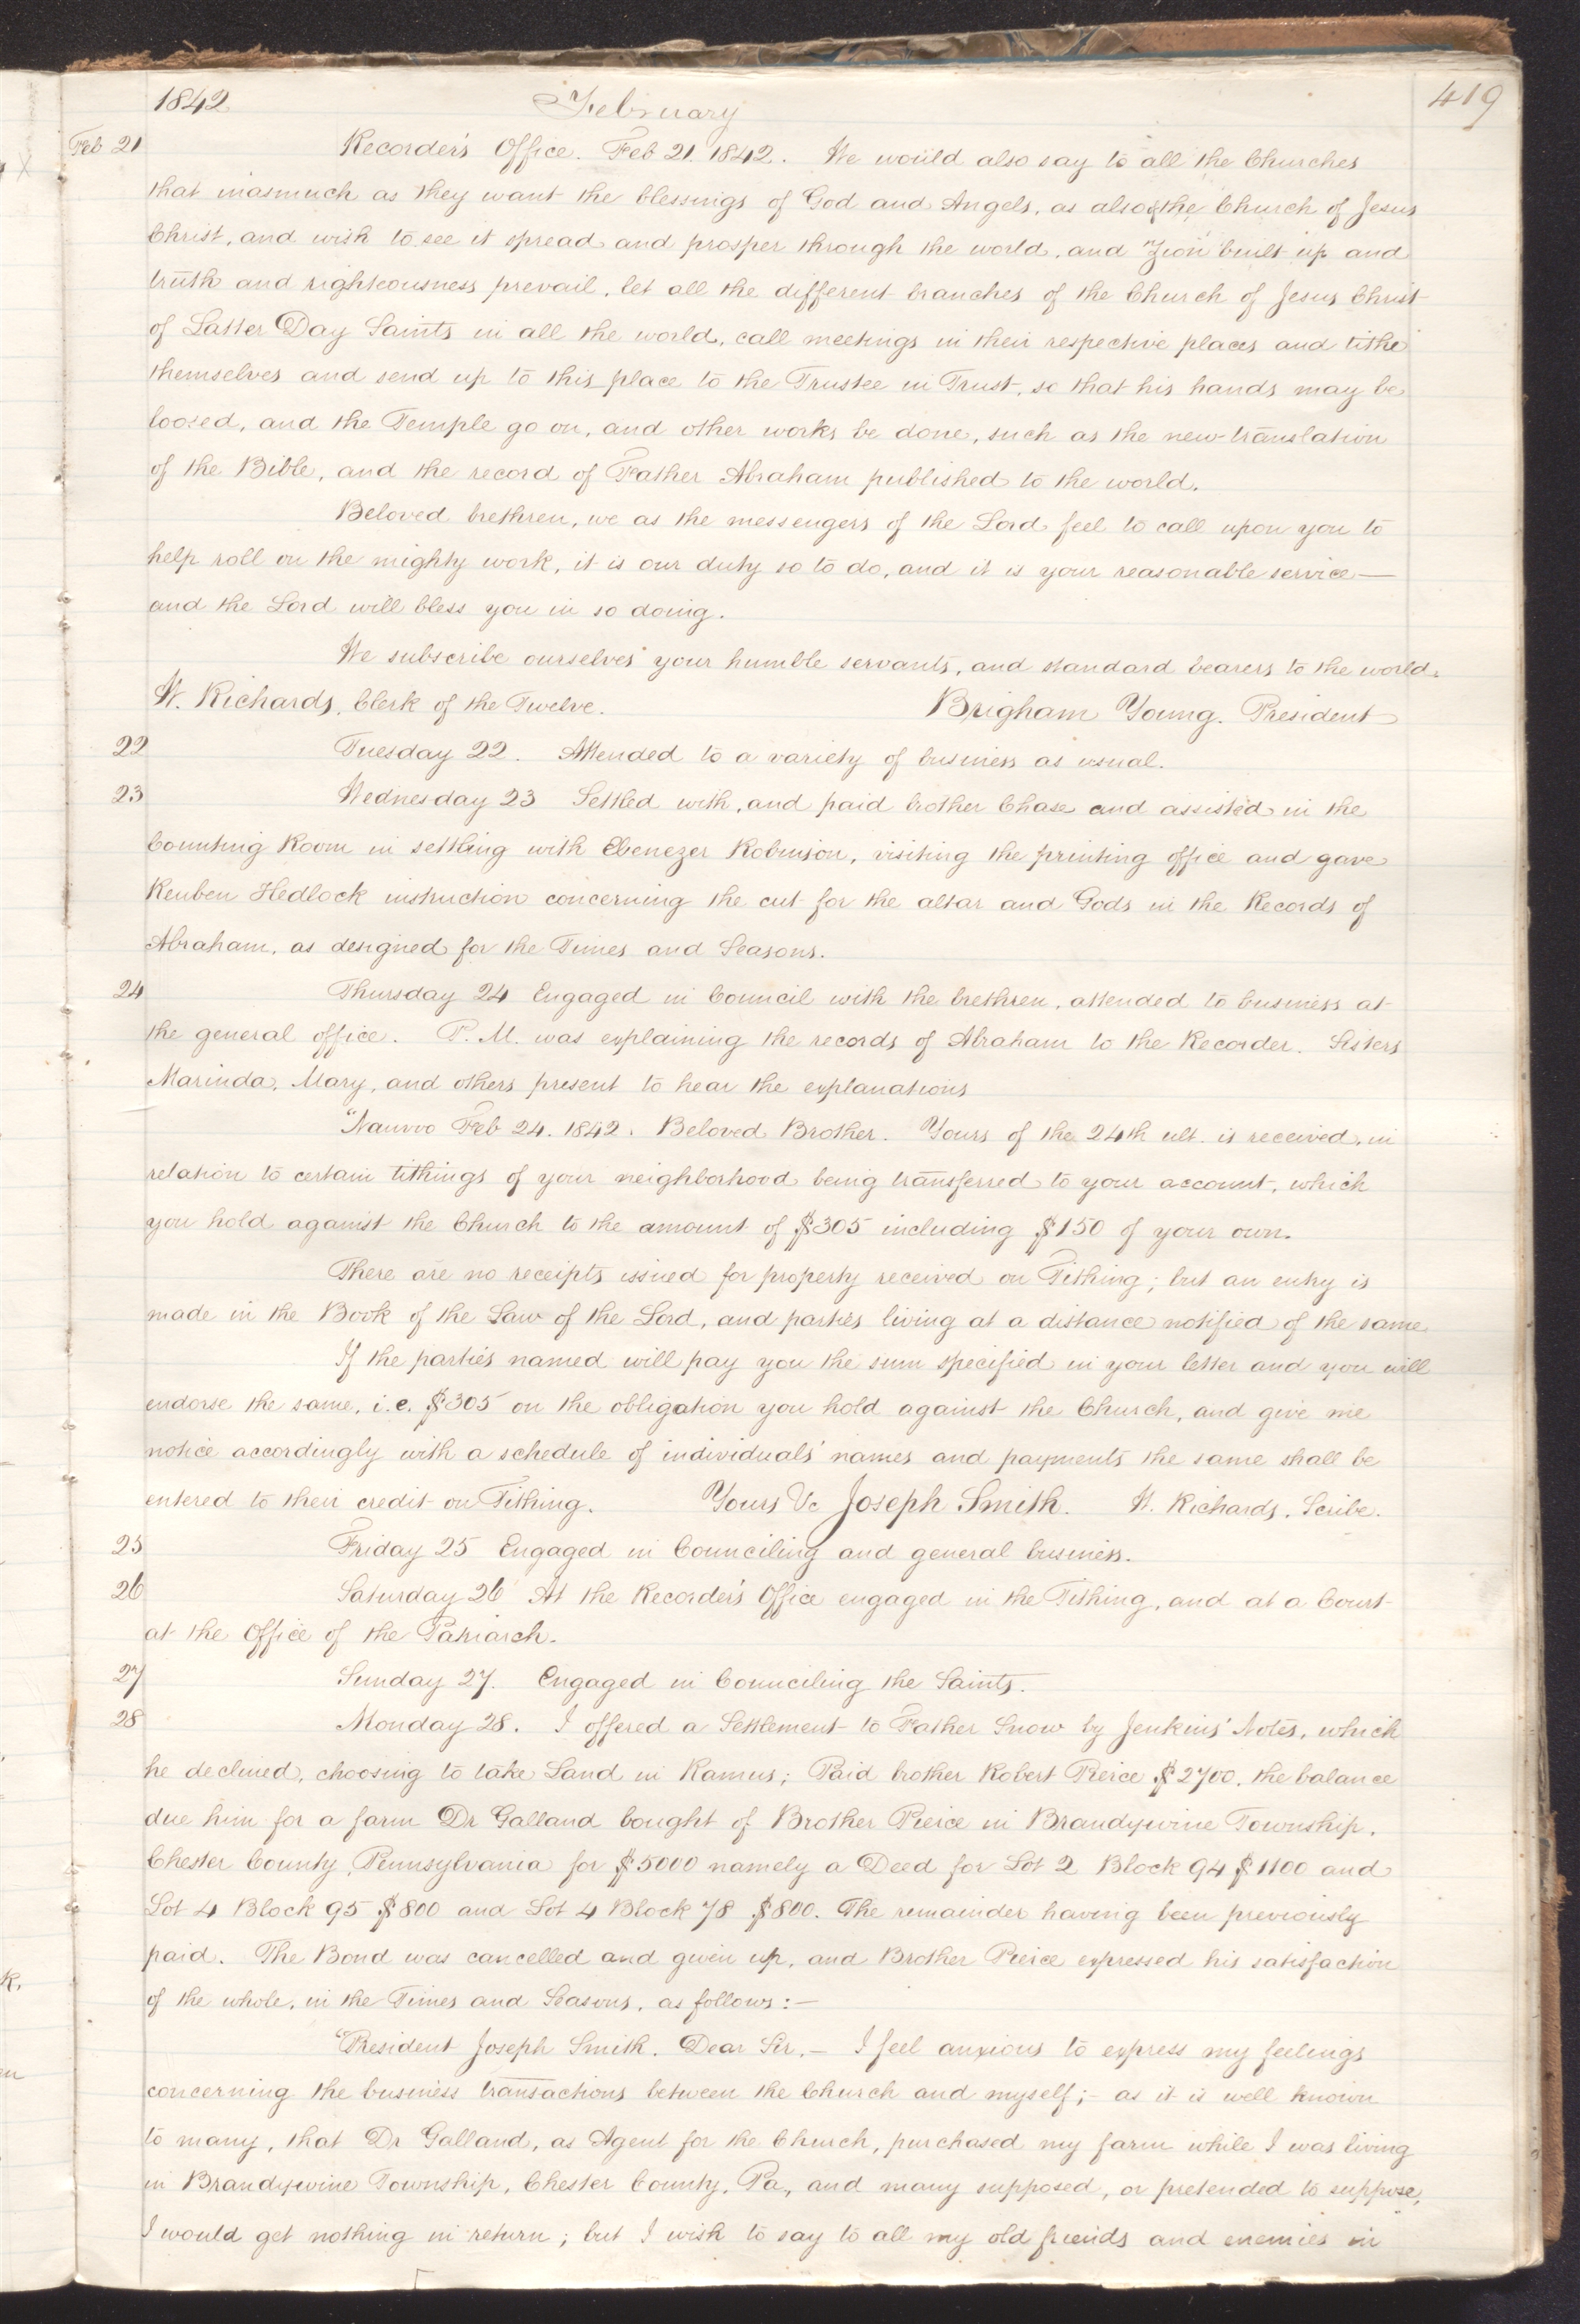 1842 February 419
Feb 21 Recorder's Office. Feb 21. 1842. We would also say to all the Churches
that inasmuch as they want the blessings of God and Angels, as also of the Church of Jesus
Christ, and wish to see it spread and prosper through the world, and Zion built up and
truth and righteousness prevail, let all the different branches of the Church of Jesus Christ
of Latter Day Saints in all the world, call meetings in their respective places and tithe
themselves and send up to this place to the Trustee in Trust, so that his hands may be
loosed, and the Temple go on, and other works be done, such as the new translation
of the Bible, and the record of Father Abraham published to the world.
Beloved brethren, we as the messengers of the Lord feel to call upon you to
help roll on the mighty work, it is our duty so to do, and it is your reasonable service—
and the Lord will bless you in so doing.
We subscribe ourselves your humble servants, and standard bearers to the world.
W. Richards, Clerk of the Twelve. Brigham Young. President
22 Tuesday 22. Attended to a variety of business as usual.
23 Wednesday 23 Settled with, and paid brother Chase and assisted in the
Counting Room in settling with Ebenezer Robinson, visiting the printing office and gave
Reuben Hedlock instruction concerning the cut for the altar and Gods in the Records of
Abraham, as designed for the Times and Seasons.
24 Thursday 24 Engaged in Council with the brethren, attended to business at
the general office. P.M. was explaining the records of Abraham to the Recorder. Sisters
Marinda, Mary, and others present to hear the explanations
"Nauvoo Feb 24. 1842. Beloved Brother. Yours of the 24th ult. is received, in
relation to certain tithings of your neighborhood being transferred to your account, which
you hold against the Church to the amount of $305 including $150 of your own.
There are no receipts issued for property received on Tithing; but an entry is
made in the Book of the Law of the Lord, and parties living at a distance notified of the same
If the parties named will pay you the sum specified in your letter and you will
endorse the same, i.e. $305 on the obligation you hold against the Church, and give me
notice accordingly with a schedule of individuals' names and payments the same shall be
entered to their credit on Tithing. Yours &c Joseph Smith. W. Richards, Scribe.
25 Friday 25 Engaged in Counciling and general business.
26 Saturday 26 At the Recorder's Office engaged in the Tithing, and at a Court
at the Office of the Patriarch.
27 Sunday 27. Engaged in Counciling the Saints.
28 Monday 28. I offered a Settlement to Father Snow by Jenkins' Notes, which
he declined, choosing to take Land in Ramus; Paid brother Robert Pierce $2700. the balance
due him for a farm Dr Galland bought of Brother Peirce in Brandywine Township,
Chester County, Pennsylvania for $5000 namely a Deed for Lot 2 Block 94 $1100 and
Lot 4 Block 95 $800 and Lot 4 Block 78 $800. The remainder having been previously
paid. The Bond was cancelled and given up, and Brother Peirce expressed his satisfaction
of the whole, in the Times and Seasons, as follows:—
"President Joseph Smith. Dear Sir,— I feel anxious to express my feelings
concerning the business transactions between the Church and myself;— as it is well known
to many, that Dr Galland, as Agent for the Church, purchased my farm while I was living
in Brandywine Township, Chester County, Pa, and many supposed, or pretended to suppose,
I would get nothing in return; but I wish to say to all my old friends and enemies in